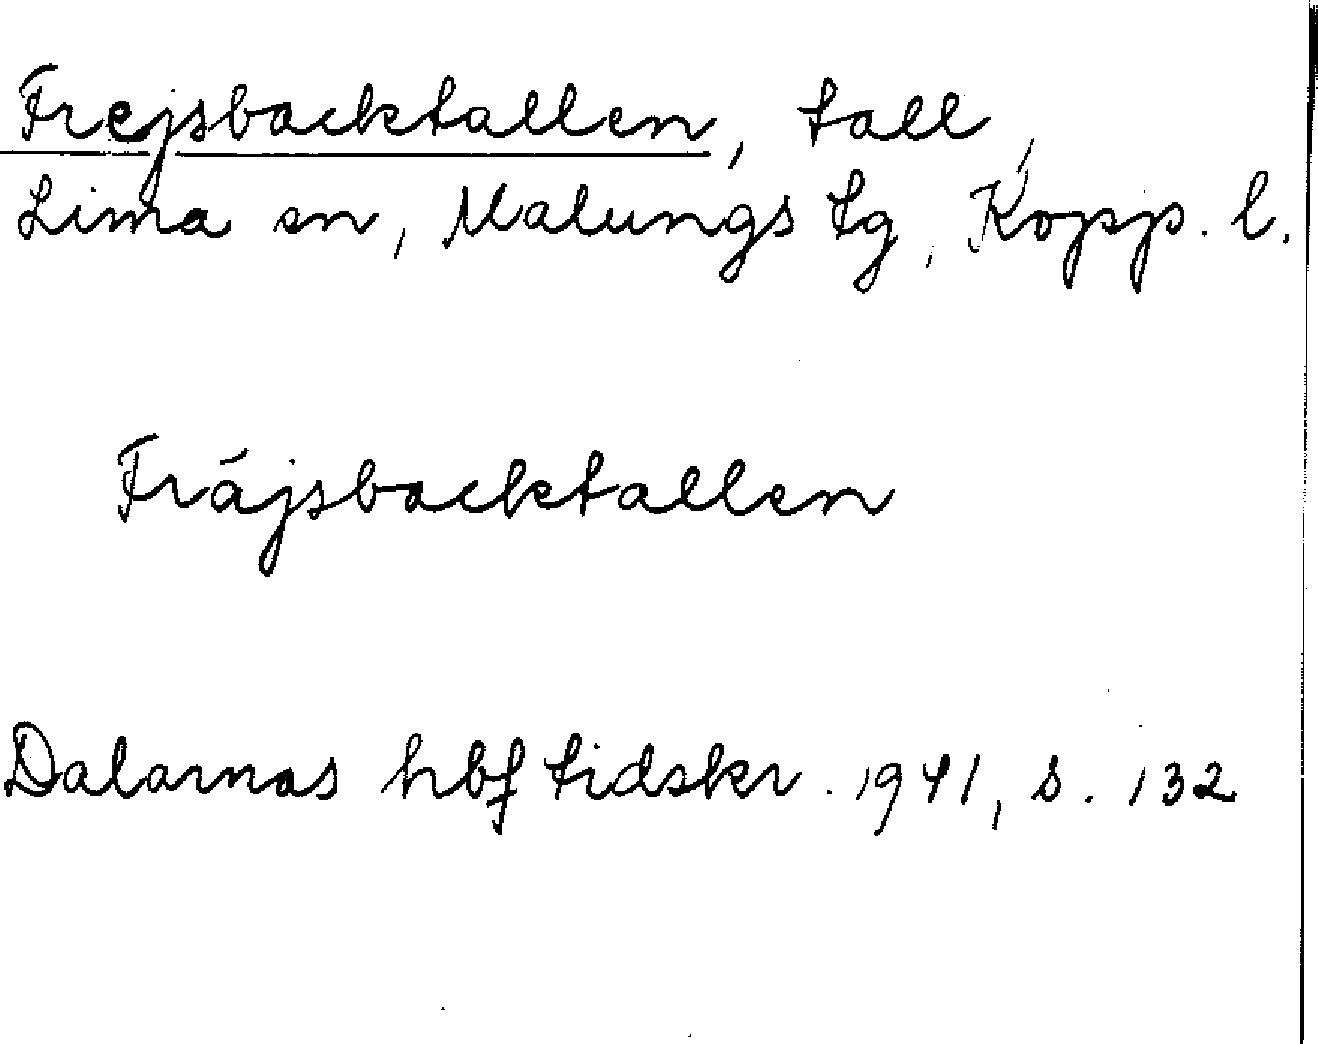 Frejsbacktallen, tall,
Lima sn, Malungs tg, Kopp. l.
Frájsbacktallen
Dalarnas hbf tidskr. 1941, s. 132